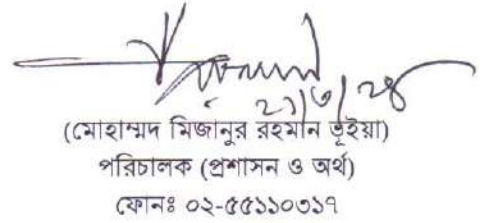 (মোহাম্মদ মিজানুর রহমান ভূইয়া)
পরিচালক (প্রশাসন ও অর্থ)
ফোনঃ ০২-৫৫১১০৩১৭